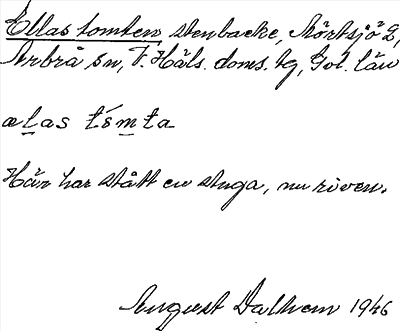 Ellas tomten stenbacke, Mörtsjö 2,
Arbrå sn, V. Häls. doms. tg, Gvl. län
ał̲as tsm̲ta
Här har stått en stuga, nu riven.
August Dalhem 1946